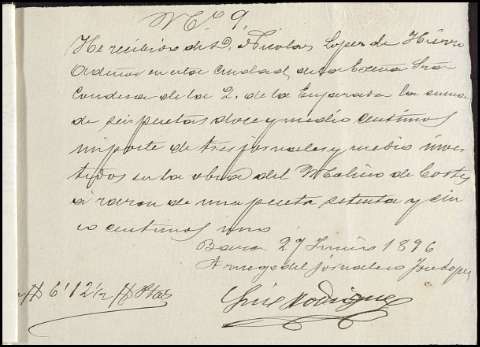 N.º 9.
He recibido de D. Nicolas Lopez de Hierro
en esta Ciudad, de la Excma Sra
Condesa de la Q. de la Enjarada la suma
de seis pesetas doce y medio centimos
importe de tres jornales y medio inver
tidos en la obra del Molino de Cortes
á razon de una peseta setenta y cin
co centimos uno
Baza 27 Junio 1896
A ruego del jornalero Jose Lopez
Rodriguez
6'12½ Ptas